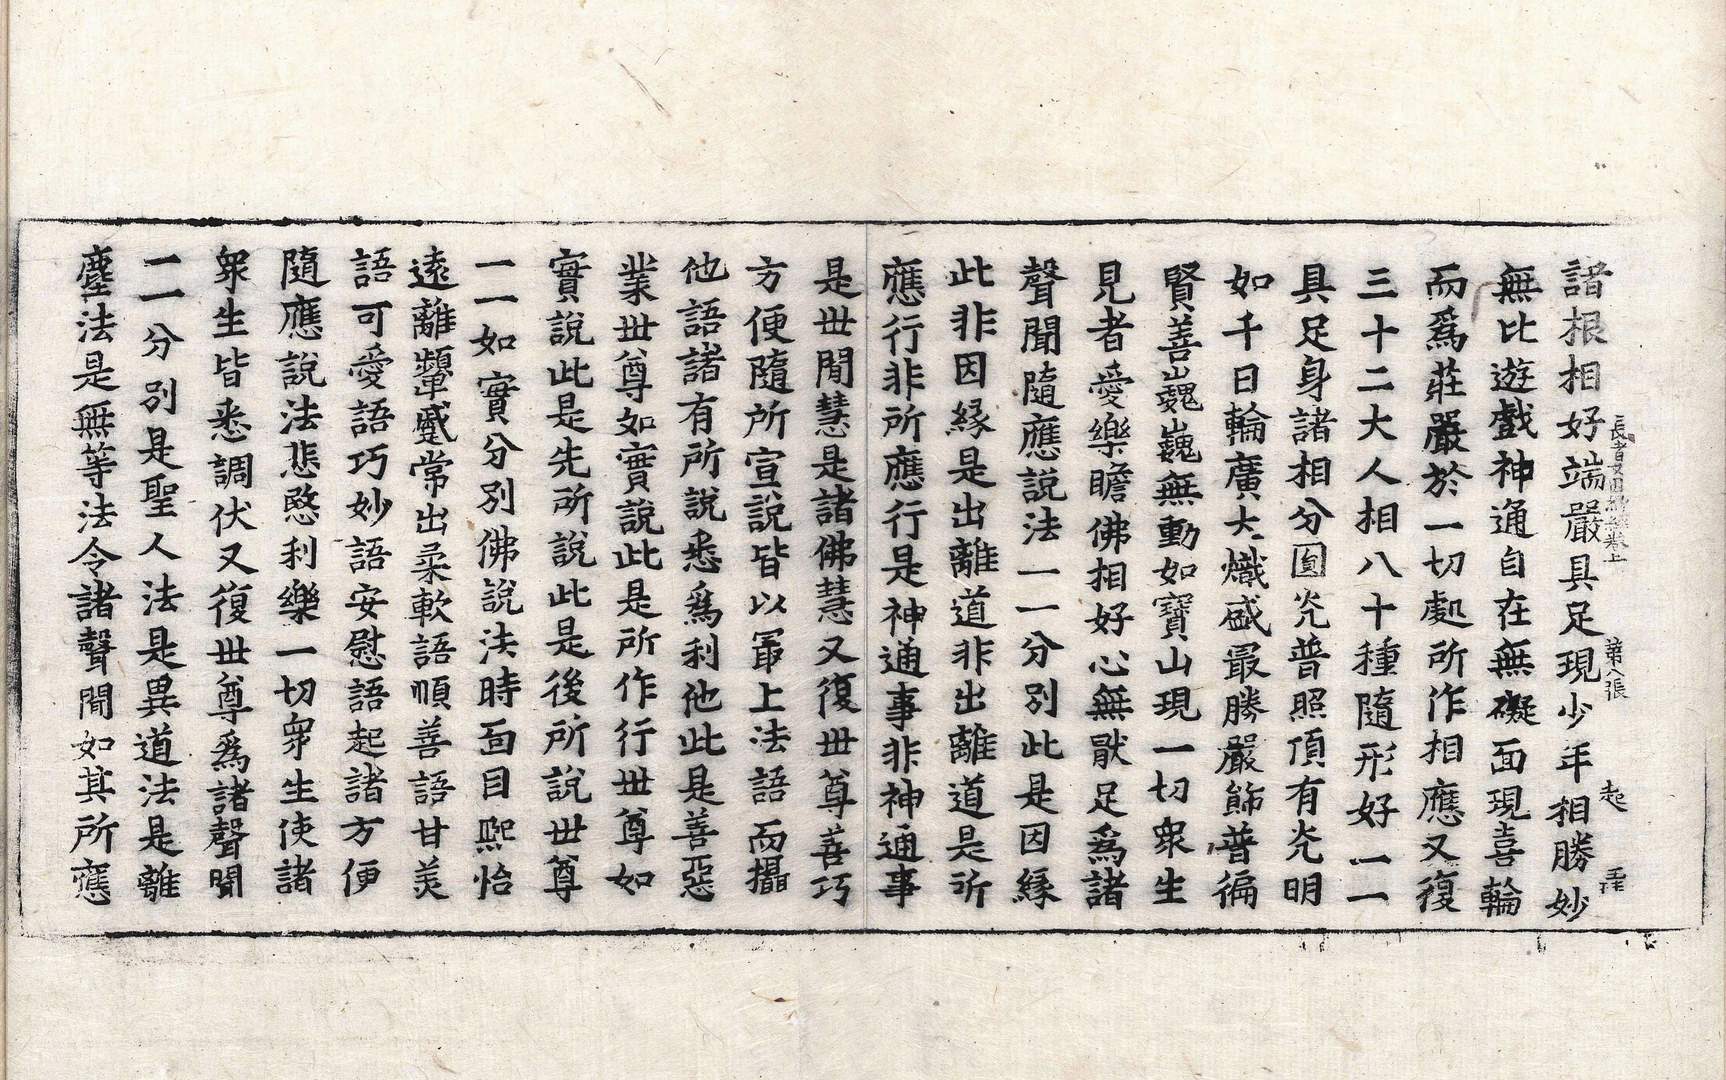 長者女因緣經卷上 第八張 起
諸根相好端嚴具足現少年相勝妙
無比遊戲神通自在無礙面現喜輪
而爲莊嚴於一切處所作相應又復
三十二大人相八十種隨形好一一
具足身諸相分圓光普照頂有光明
如千日輪廣大熾盛最勝嚴飾普徧
賢善巍巍無動如寶山現一切衆生
見者愛樂瞻佛相好心無猒足爲諸
聲聞隨應說法一一分別此是因縁
此非因縁是出離道非出離道是所
應行非所應行是神通事非神通事
是世間慧是諸佛慧又復世尊善巧
方便隨所宣說皆以冣上法語而攝
他語諸有所說悉爲利他此是善惡
業世尊如實說此是所作行世尊如
實說此是先所說此是後所說世尊
一一如實分別佛說法時面目熙怡
遠離顰蹙常出柔軟語順善語甘美
語可愛語巧妙語安慰語起諸方便
隨應說法悲愍利樂一切衆生使諸
衆生皆悉調伏又復世尊爲諸聲聞
一一分別是聖人法是異道法是離
塵法是無等法令諸聲聞如其所應